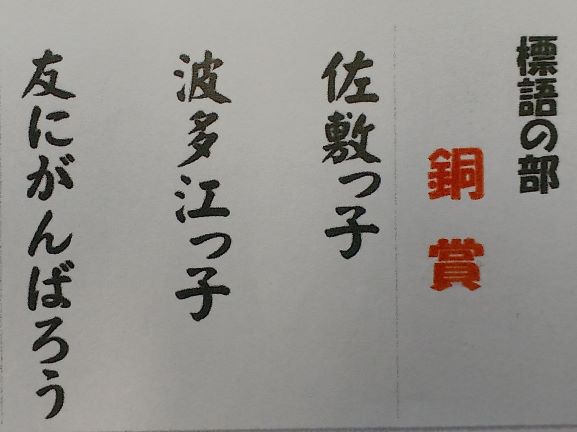 標語の部
銅賞
佐敷っ子
波多江っ子
友にがんばろう